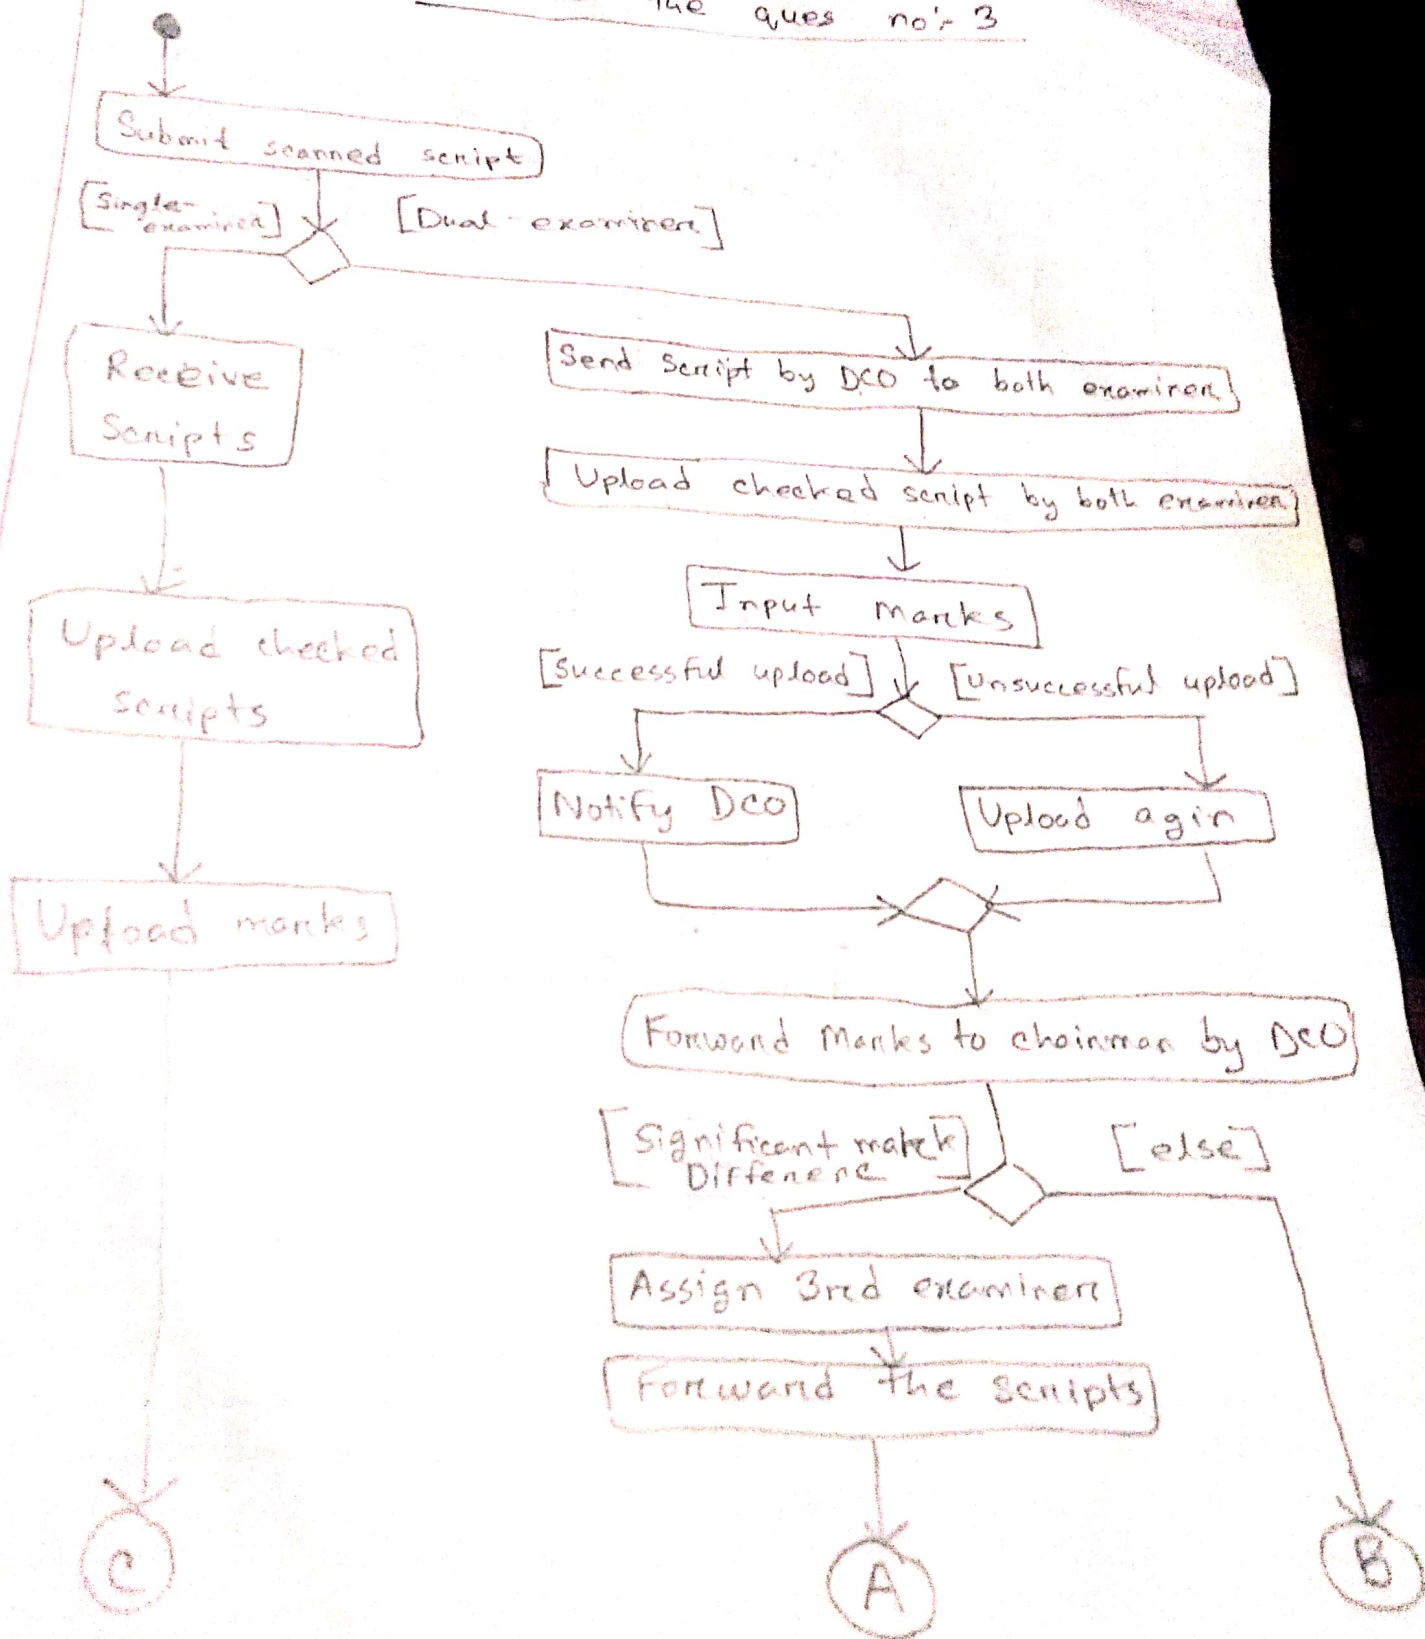 the ques no:- 3
Submit scanned script
[Single-
examiner]
[Dual-examiner]
Receive
Scripts
Send Script by DCO to both examiner
Upload checked script by both examiner
Input marks
Upload checked
scripts
[Successful upload]
[Unsuccessful upload]
Notify DCO
Upload agin
Upload marks
Forward Marks to chairman by DCO
[Significant mark]
Differenc
[else]
Assign 3rd examiner
Forward the scripts
C
A
B